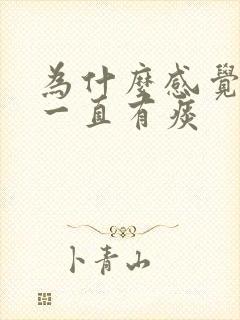 為什麼感覺
一直有痰
卜青山